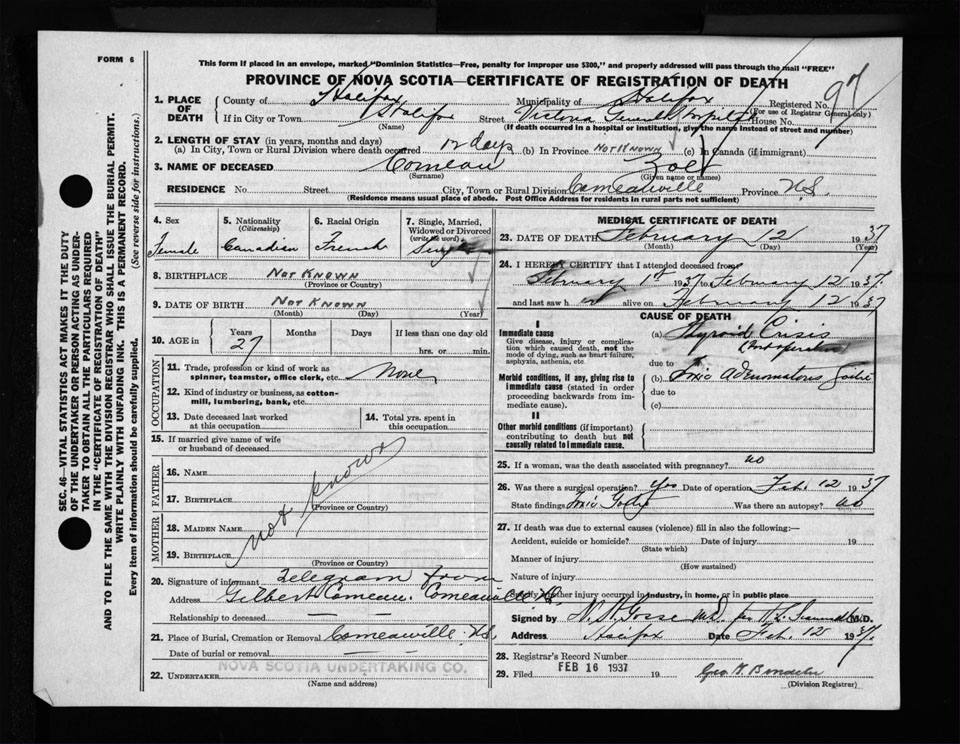 FORM 6
This form if placed in an envelope, marked "Dominion Statistics—Free, penalty for improper use $300," and properly addressed will pass through the mail "FREE"
PROVINCE OF NOVA SCOTIA—CERTIFICATE OF REGISTRATION OF DEATH
97
1. PLACE OF DEATH
County of Halifax Municipality of Halifax Registered No.
(For use of Registrar General only)
If in City or Town Halifax Street Victoria General Hospital House No.
(Name) (If death occurred in a hospital or institution, give the name instead of street and number)
2. LENGTH OF STAY (in years, months and days)
(a) In City, Town or Rural Division where death occurred 12 days (b) In Province NOT KNOWN (c) In Canada (if immigrant)
3. NAME OF DECEASED Comeau
(Surname) (Given name or names)
RESIDENCE No. Street City, Town or Rural Division Comeauville Province N.S.
(Residence means usual place of abode. Post Office Address for residents in rural parts not sufficient)
4. Sex 5. Nationality 6. Racial Origin 7. Single, Married, Widowed or Divorced
(Citizenship) (write the word)
Female Canadian French Single
8. BIRTHPLACE NOT KNOWN
(Province or County)
9. DATE OF BIRTH NOT KNOWN
(Month) (Day) (Year)
10. AGE in Years Months Days If less than one day old
27 hrs. or min.
OCCUPATION
11. Trade, profession or kind of work as spinner, teamster, office clerk, etc. None
12. Kind of industry or business, as cotton-mill, lumbering, bank, etc.
13. Date deceased last worked at this occupation
14. Total yrs. spent in this occupation
15. If married give name of wife or husband of deceased
FATHER
16. NAME
17. BIRTHPLACE
(Province or Country)
not known
MOTHER
18. MAIDEN NAME
19. BIRTHPLACE
(Province or Country)
20. Signature of informant Telegram from
Address Gilbert Comeau. Comeauville N.S.
Relationship to deceased
21. Place of Burial, Cremation or Removal Comeauville N.S.
Date of burial or removal
NOVA SCOTIA UNDERTAKING CO.
22. UNDERTAKER
(Name and address)
MEDICAL CERTIFICATE OF DEATH
23. DATE OF DEATH February 12 1937
(Month) (Day) (Year)
24. I HEREBY CERTIFY that I attended deceased from
February 1st 1937 to February 12 1937
and last saw her alive on February 12 1937
CAUSE OF DEATH
I
Immediate cause
Give disease, injury or complication which caused death, not the mode of dying, such as heart failure, asphyxia, asthenia, etc.
(a) Thyroid Crisis
due to
Morbid conditions, if any, giving rise to immediate cause (stated in order proceeding backwards from immediate cause).
(b) Toxic Adenomatous Goitre
due to
(c)
II
Other morbid conditions (if important) contributing to death but not causally related to immediate cause.
25. If a woman, was the death associated with pregnancy? no
26. Was there a surgical operation? yes Date of operation Feb. 12 1937
State findings Toxic Was there an autopsy? no
27. If death was due to external causes (violence) fill in also the following:—
Accident, suicide or homicide? Date of injury 19
(State which)
Manner of injury
(How sustained)
Nature of injury
Specify whether injury occurred in industry, in home, or in public place
Signed by M.D.
Address Halifax Date Feb. 12 1937
28. Registrar's Record Number
29. Filed FEB 16 1937 19
(Division Registrar)
SEC. 46—VITAL STATISTICS ACT MAKES IT THE DUTY
OF THE UNDERTAKER OR PERSON ACTING AS UNDER-
TAKER TO OBTAIN ALL THE PARTICULARS REQUIRED
IN THE "CERTIFICATE OF REGISTRATION OF DEATH"
AND TO FILE THE SAME WITH THE DIVISION REGISTRAR WHO SHALL ISSUE THE BURIAL PERMIT.
WRITE PLAINLY WITH UNFADING INK. THIS IS A PERMANENT RECORD.
Every item of information should be carefully supplied. (See reverse side for instructions.)